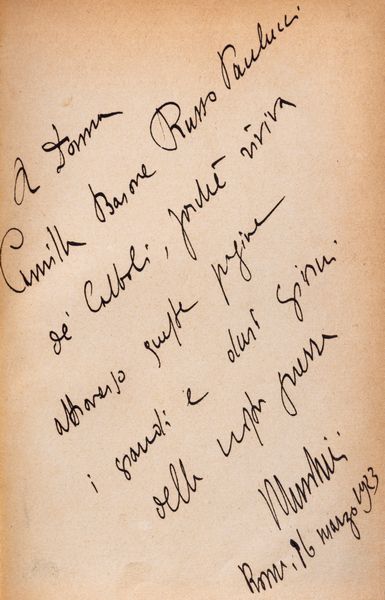 A Donna
Camilla Barone Russo Paulucci
de' Calboli, perché riviva
attraverso queste pagine
i grandi e duri giorni
della nostra guerra
Mussolini
Roma, 26 marzo 1923